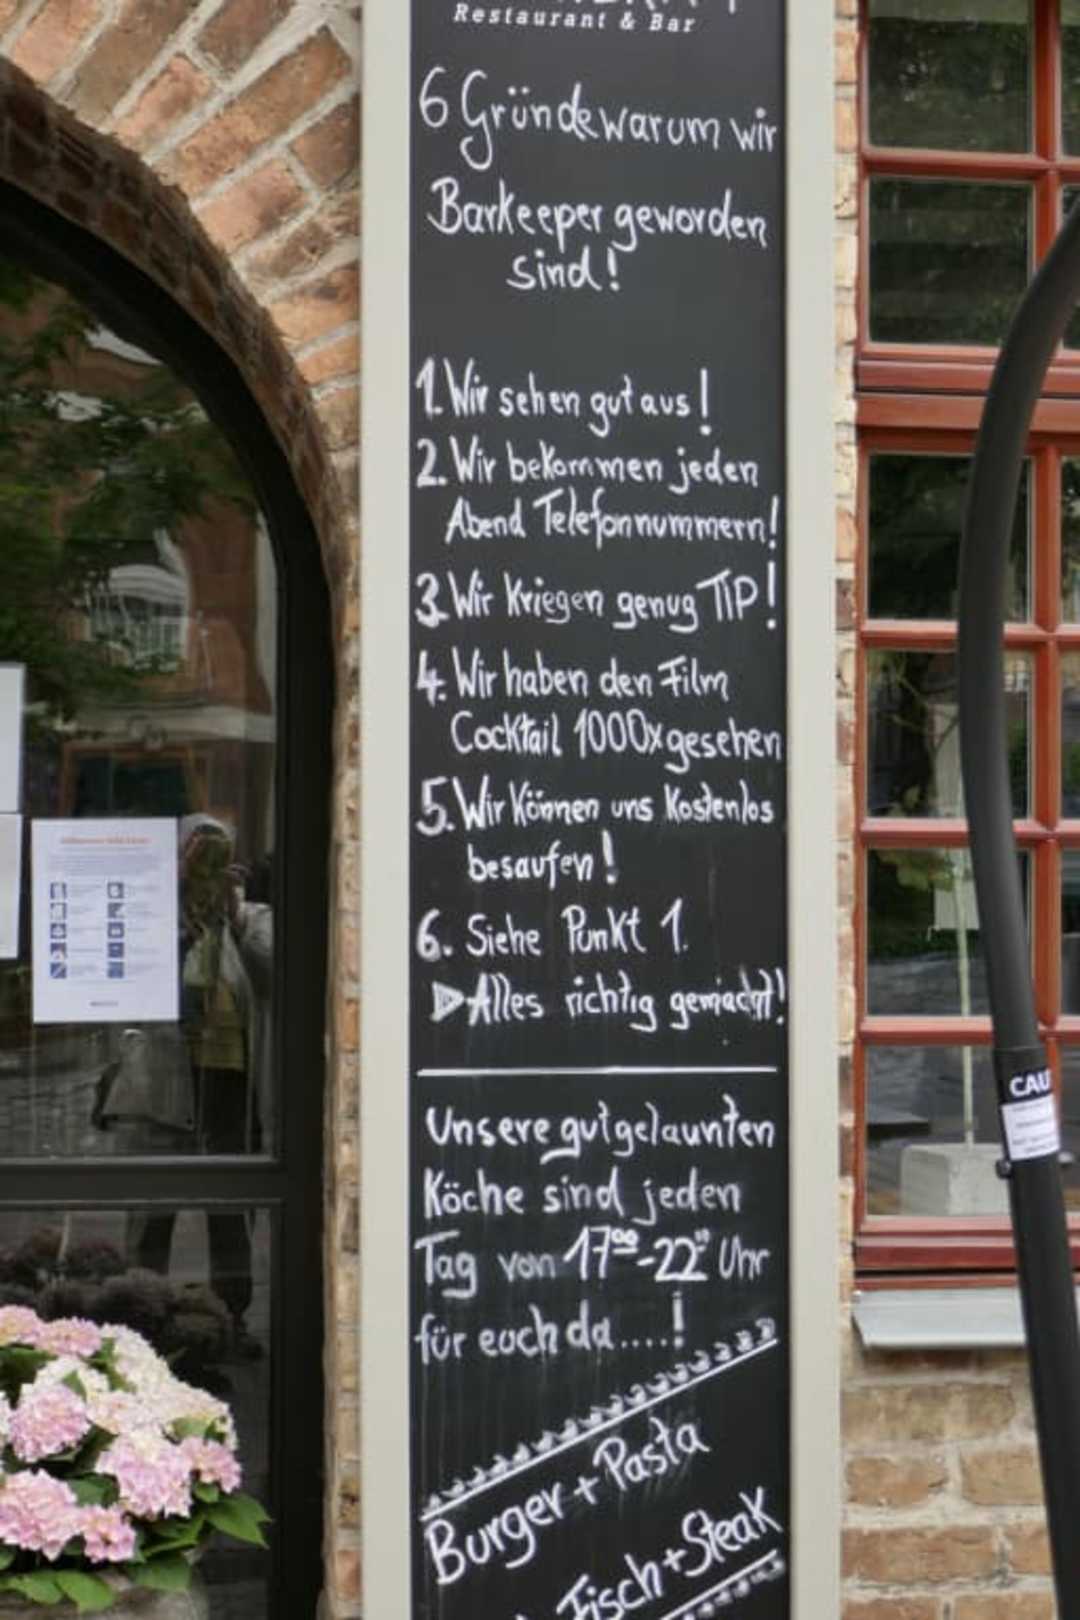 Restaurant & Bar
6 Gründe warum wir
Barkeeper geworden
sind!
1. Wir sehen gut aus!
2. Wir bekommen jeden
Abend Telefonnummern!
3. Wir kriegen genug TIP!
4. Wir haben den Film
Cocktail 1000x gesehen
5. Wir können uns kostenlos
besaufen!
6. Siehe Punkt 1.
Alles richtig gemacht!
Unsere gutgelaunten
Köche sind jeden
Tag von 17⁰⁰-22⁰⁰ Uhr
für euch da....!
Burger + Pasta
Fisch + Steak
CAU